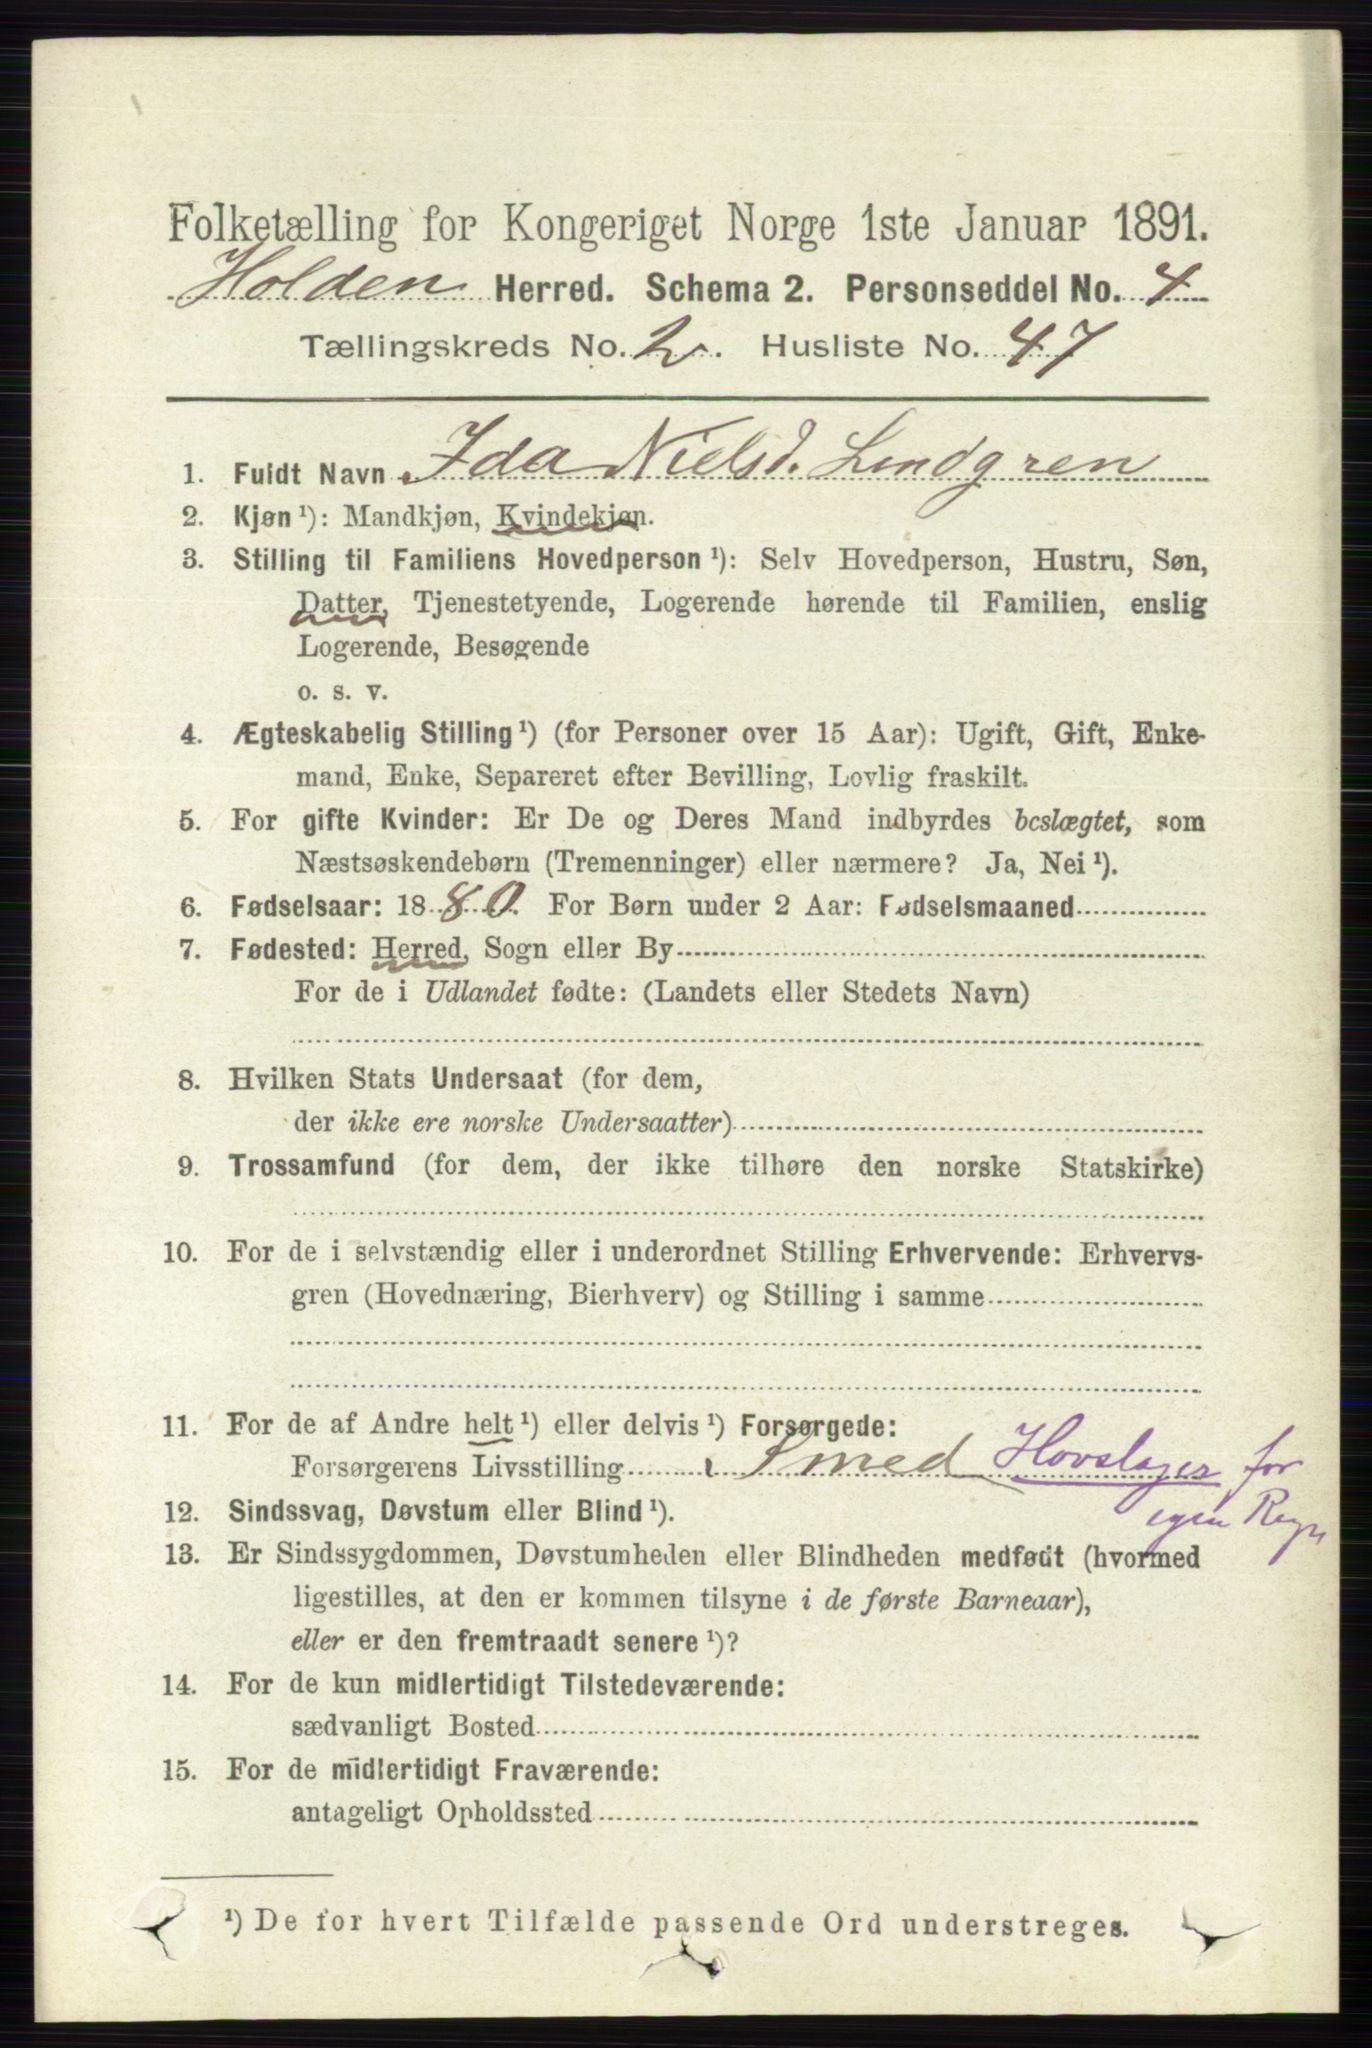 Folketælling for Kongeriget Norge 1ste Januar 1891.
Holden Herred. Schema 2. Personseddel No. 4
Tællingskreds No. 2. Husliste No. 47
1. Fuldt Navn Ida Nielsd. Lindgren
2. Kjøn ¹): Mandkjøn, Kvindekjøn.
3. Stilling til Familiens Hovedperson ¹): Selv Hovedperson, Hustru, Søn,
Datter, Tjenestetyende, Logerende hørende til Familien, enslig
Logerende, Besøgende
o. s. v.
4. Ægteskabelig Stilling ¹) (for Personer over 15 Aar): Ugift, Gift, Enke-
mand, Enke, Separeret efter Bevilling, Lovlig fraskilt.
5. For gifte Kvinder: Er De og Deres Mand indbyrdes beslægtet, som
Næstsøskendebørn (Tremenninger) eller nærmere? Ja, Nei ¹).
6. Fødselsaar: 1880. For Børn under 2 Aar: Fødselsmaaned
7. Fødested: Herred, Sogn eller By
For de i Udlandet fødte: (Landets eller Stedets Navn)
8. Hvilken Stats Undersaat (for dem,
der ikke ere norske Undersaatter)
9. Trossamfund (for dem, der ikke tilhøre den norske Statskirke)
10. For de i selvstændig eller i underordnet Stilling Erhvervende: Erhvervs-
gren (Hovednæring, Bierhverv) og Stilling i samme
11. For de af Andre helt ¹) eller delvis ¹) Forsørgede:
Forsørgerens Livsstilling Smed Hovslager for
egen Regn
12. Sindssvag, Døvstum eller Blind ¹).
13. Er Sindssygdommen, Døvstumheden eller Blindheden medfødt (hvormed
ligestilles, at den er kommen tilsyne i de første Barneaar),
eller er den fremtraadt senere ¹)?
14. For de kun midlertidigt Tilstedeværende:
sædvanligt Bosted
15. For de midlertidigt Fraværende:
antageligt Opholdssted
¹) De for hvert Tilfælde passende Ord understreges.